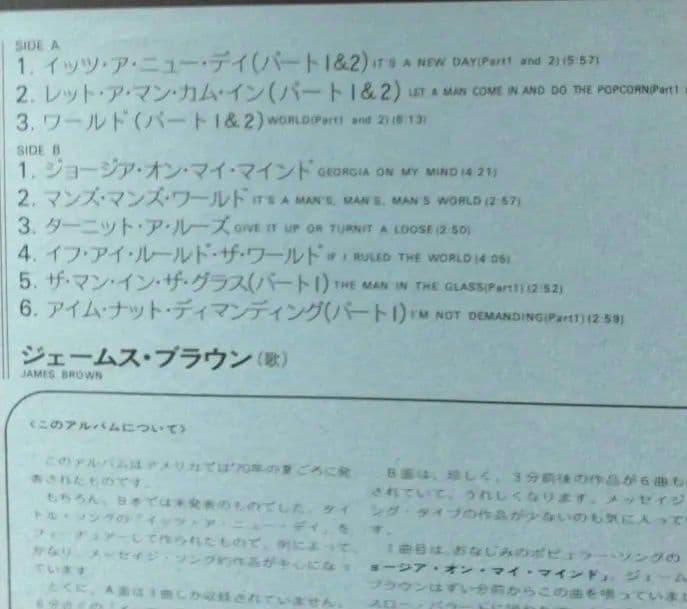 SIDE A
1. イッツ・ア・ニュー・デイ(パート1&2) IT'S A NEW DAY(Part1 and 2)(5:57)
2. レット・ア・マン・カム・イン(パート1&2) LET A MAN COME IN AND DO THE POPCORN(Part1
3. ワールド(パート1&2) WORLD(Part1 and 2)(6:13)
SIDE B
1. ジョージア・オン・マイ・マインド GEORGIA ON MY MIND(4:21)
2. マンズ・マンズ・ワールド IT'S A MAN'S, MAN'S, MAN'S WORLD(2:57)
3. ターニット・ア・ルーズ GIVE IT UP OR TURNIT A LOOSE(2:50)
4. イフ・アイ・ルールド・ザ・ワールド IF I RULED THE WORLD(4:05)
5. ザ・マン・イン・ザ・グラス(パート1) THE MAN IN THE GLASS(Part1)(2:52)
6. アイム・ナット・ディマンディング(パート1) I'M NOT DEMANDING(Part1)(2:59)
ジェームス・ブラウン(歌)
JAMES BROWN
〈このアルバムについて〉
このアルバムはアメリカでは'70年の夏ごろに発
表されたものです。
もちろん、日本では未発表のものでした。タイ
トル・ソングの「イッツ・ア・ニュー・デイ」を
フィーチュアーして作られたもので、例によって、
かなり、メッセイジ・ソング的作品が中心になっ
ています。
とくに、A面は3曲しか収録されていません。
6分近くの「イ
B面は、珍しく、3分前後の作品が6曲も
されていて、うれしくなります。メッセイジ
ング・タイプの作品が少ないのも気に入って
す。
1曲目は、おなじみのポピュラー・ソングの
ョージア・オン・マイ・マインド」。ジェーム
ブラウンはずい分前からこの曲を唄っていま
スロー・バラードに